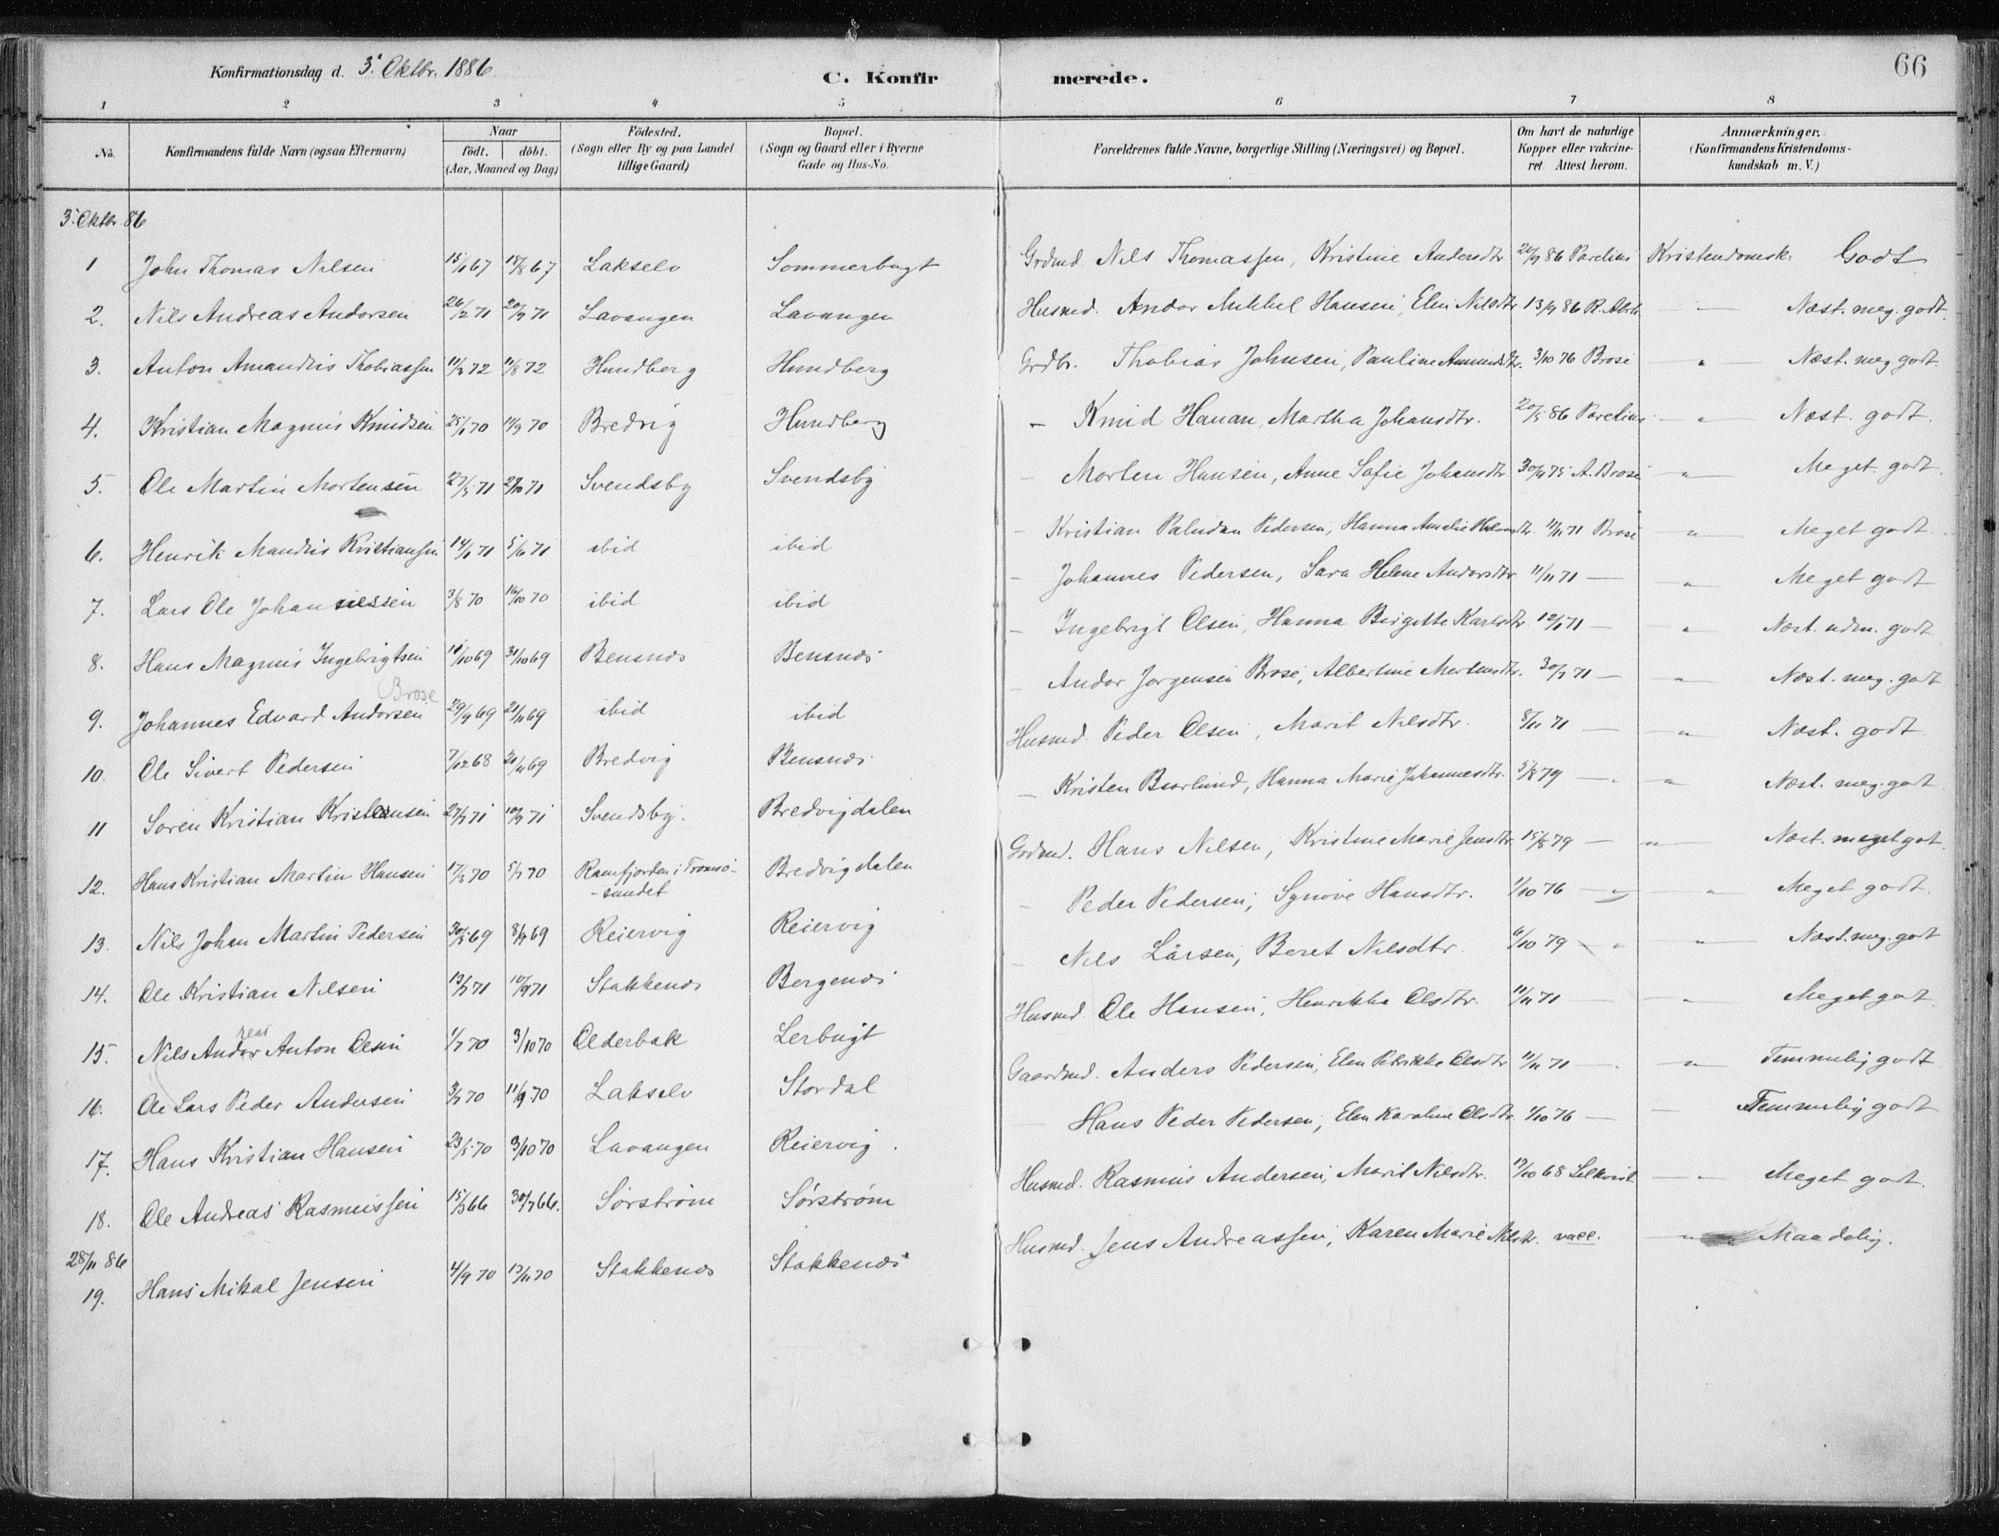 Konfirmationsdag d. 3. Oktbr. 1886. C. Konfirmerede. 66
1 2 3 4 5 6 7 8
No. Konfirmandens fulde Navn (ogsaa Efternavn) Naar födt. döbt. (Aar, Maaned og Dag) Födested. (Sogn eller By og paa Landet tillige Gaard) Bopæl. (Sogn og Gaard eller i Byerne Gade og Hus-No. Forældrenes fulde Navne, borgerlige Stilling (Næringsvei) og Bopæl. Om havt de naturlige Kopper eller vakcineret. Attest herom. Anmærkninger. (Konfirmandens Kristendomskundskab m. V.)
3. Oktbr 86
1 John Thomas Nilsen 67 67 Lakselv Sommerbugt Grdmd. Nils Thomassen, Kristine Andersdtr 86 Parelius Kristendomsk: Godt
2. Nils Andreas Andorsen 26/12 71 20/9 71 Lavangen Lavangen Husmd. Andor Mikkel Hansen, Elen Nilsdtr 13/9 86 Næst. meg. godt.
3. Anton Amandus Thobiassen 72 72 Hundberg Hundberg Grdbr. Thobias Johnsen, Pauline Amundsdtr. 3/10 76 Brose " Næst. meg godt.
4. Kristian Magnus Knudsen 70 70 Bredvig Hundberg – Knud Hanan, Martha Johansdtr. 20/5 86 Parelius – " – Næst. godt.
5. Ole Martin Mortensen 27/5 71 71 Svendsby Svendsby – Morten Hansen, Anne Sofie Johansdtr 75 A. Brose " Meget godt
6. Henrik Mandrus Kristiansen 71 71 ibid ibid – Kristian Paludan Pedersen, Hanna Amalie 11/11 71 Brose " Meget godt.
7. Lars Ole Johannessen 3/8 70 16/10 70 ibid ibid – Johannes Pedersen, Sara Helene Andorsdtr. 11/11 71 – " Meget godt
8. Hans Magnus Ingebrigtsen 69 31/10 69 Bensnes Bensnes – Ingebrigt Olsen, Hanna Birgitte Karlsdtr. 71 – " Næst. udm. godt
Brose
9. Johannes Edvard Andorsen 29/9 69 21/11 69 ibid ibid – Andor Jørgensen Brose, Albertine Mortensdtr. 71 – " Næst. meg. godt
10. Ole Sivert Pedersen 7/12 68 69 Bredvig Bensnes. Husmd. Peder Olsen, Marit Nilsdtr. 8/11 71 – " Næst. godt.
11 Søren Kristian Kristensen 71 71 Svendsby. Bredvigdalen – Kristen Hanna Marie Johannesdtr. 5/8 79 – " Næst. meg. godt
12. Hans Kristian Martin Hansen 17/3 70 5/7 70 Ramfjorden i Tromsø-sundet Bredvigdalen Grdmd. Hans Nilsen, Kristine Marie Jensdtr 15/8 79 – " Næst. meget got.
13. Nils Johan Martin Pedersen 69 69 Reiervig Reiervig – Peder Pedersen, Synøve Hansdtr. 1/10 76 – " " Meget godt.
14. Ole Kristian Nilsen 71 71 Stakkenes Borgenes – Nils Larsen, Beret Nilsdtr. 6/10 79 " " Næst. meg. godt
reas
15. Nils Andor Anton Olsen 1/7 70 3/10 70 Olderbak Lerbugt Husmd. Ole Hansen, Henrikka Olsdtr. 11/11 71 – " Meget godt
16. Ole Lars Peder Andersen 70 11/9 70 Lakselv Stordal Gaardmd. Anders Pedersen, Elen Petrikke Olsdtr 11/11 71 – " Temmelig godt
17. Hans Kristian Hansen 23/5 70 3/10 70 Lavangen Reiervig. – Hans Peder Pedersen, Elen Karoline Olsdtr. 1/10 76 – – Temmelig godt
18. Ole Andreas Rasmussen 66 30/7 66. Sørstrøm Sørstrøm Husmd. Rasmus Andersen, Marit Nilsdtr. 68 " Meget godt.
28/11 86
19. Hans Mikal Jensen 4/9 70 13/11 70 Stakkenes Stakkenes Husmd. Jens Andreassen, Karen Marie Nilsdtr. vacc. " Maadelig.